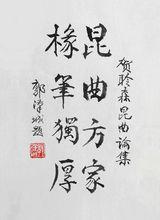 贺聆森昆曲論集
昆曲方家
椽筆獨厚
郭漢城題